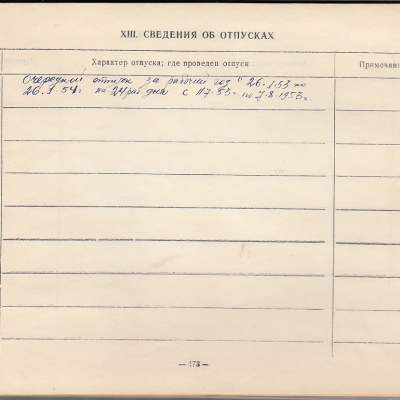 XIII. СВЕДЕНИЯ ОБ ОТПУСКАХ
Характер отпуска; где проведен отпуск
Примечани
Очередной отпуск за рабочий год с 26.I.53 по
26.I.54г на 24 раб дня с 11.7.53г. по 7.8.1953г.
— 173 —